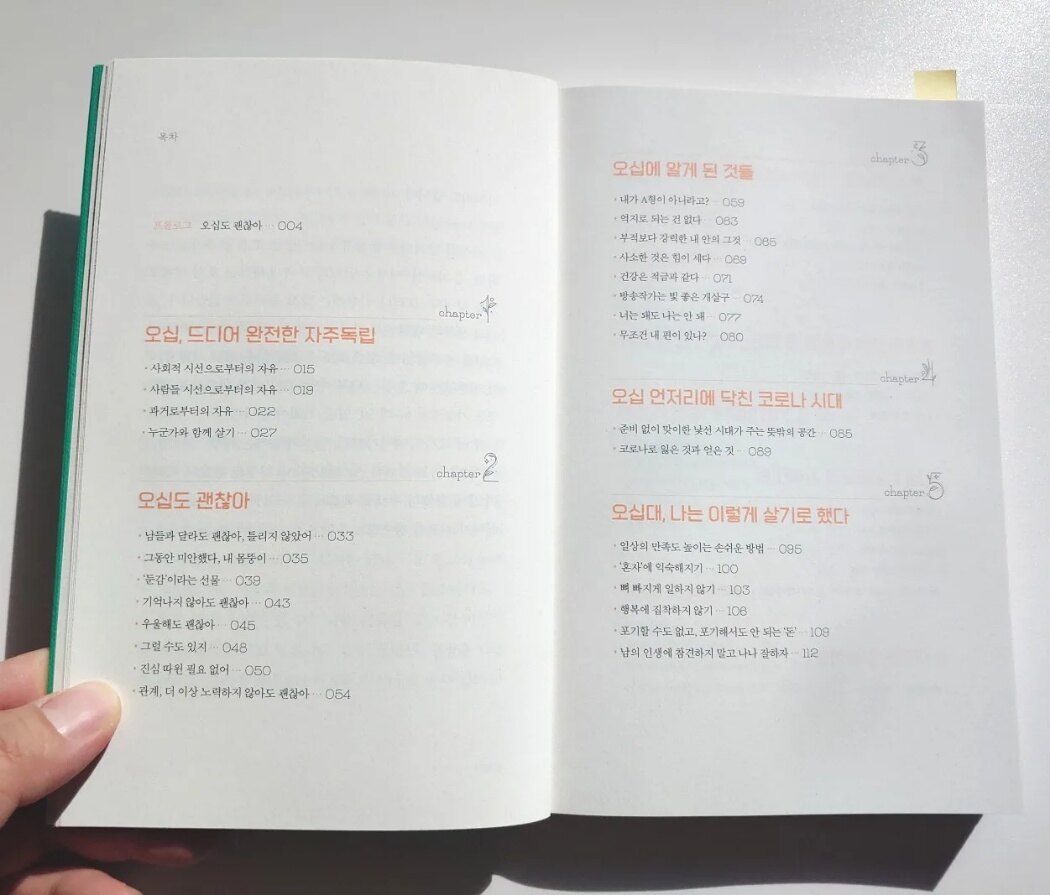 목차
프롤로그 오십도 괜찮아 ··· 004
chapter 1
오십, 드디어 완전한 자주독립
• 사회적 시선으로부터의 자유 ··· 015
• 사람들 시선으로부터의 자유 ··· 019
• 과거로부터의 자유 ··· 022
• 누군가와 함께 살기 ··· 027
chapter 2
오십도 괜찮아
• 남들과 달라도 괜찮아, 틀리지 않았어 ··· 033
• 그동안 미안했다, 내 몸뚱이 ··· 035
• '둔감'이라는 선물 ··· 039
• 기억나지 않아도 괜찮아 ··· 043
• 우울해도 괜찮아 ··· 045
• 그럴 수도 있지 ··· 048
• 진심 따윈 필요 없어 ··· 050
• 관계, 더 이상 노력하지 않아도 괜찮아 ··· 054
chapter 3
오십에 알게 된 것들
• 내가 A형이 아니라고? ··· 059
• 억지로 되는 건 없다 ··· 063
• 부적보다 강력한 내 안의 그것 ··· 065
• 사소한 것은 힘이 세다 ··· 069
• 건강은 적금과 같다 ··· 071
• 방송작가는 빛 좋은 개살구 ··· 074
• 너는 돼도 나는 안 돼 ··· 077
• 무조건 내 편이 있나? ··· 080
chapter 4
오십 언저리에 닥친 코로나 시대
• 준비 없이 맞이한 낯선 시대가 주는 뜻밖의 공간 ··· 085
• 코로나로 잃은 것과 얻은 것 ··· 089
chapter 5
오십대, 나는 이렇게 살기로 했다
• 일상의 만족도 높이는 손쉬운 방법 ··· 095
• '혼자'에 익숙해지기 ··· 100
• 뼈 빠지게 일하지 않기 ··· 103
• 행복에 집착하지 않기 ··· 106
• 포기할 수도 없고, 포기해서도 안 되는 '돈' ··· 109
• 남의 인생에 참견하지 말고 나나 잘하자 ··· 112